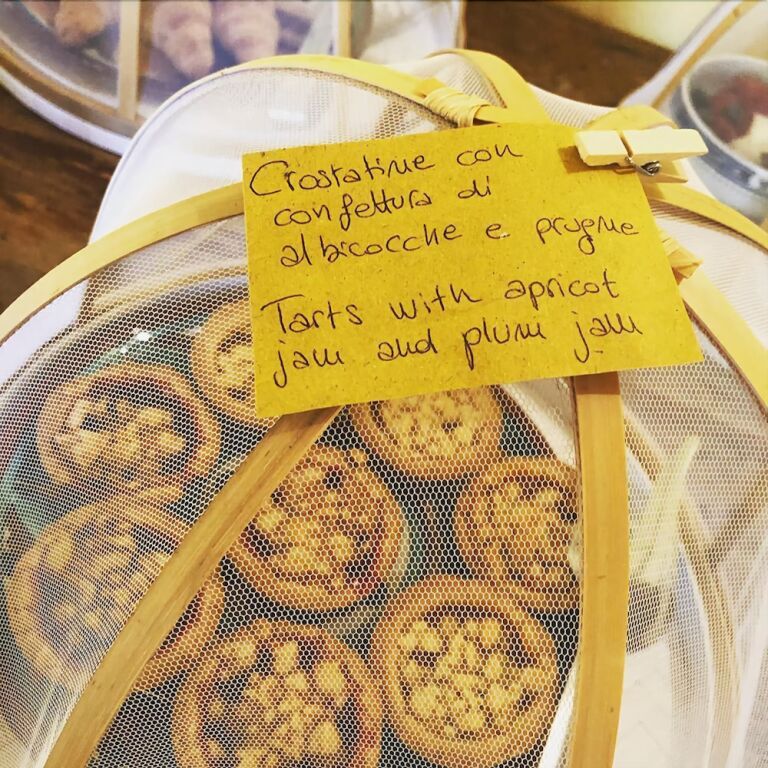 Crostatine con
confettura di
albicocche e prugne
Tarts with apricot
jam and plum jam